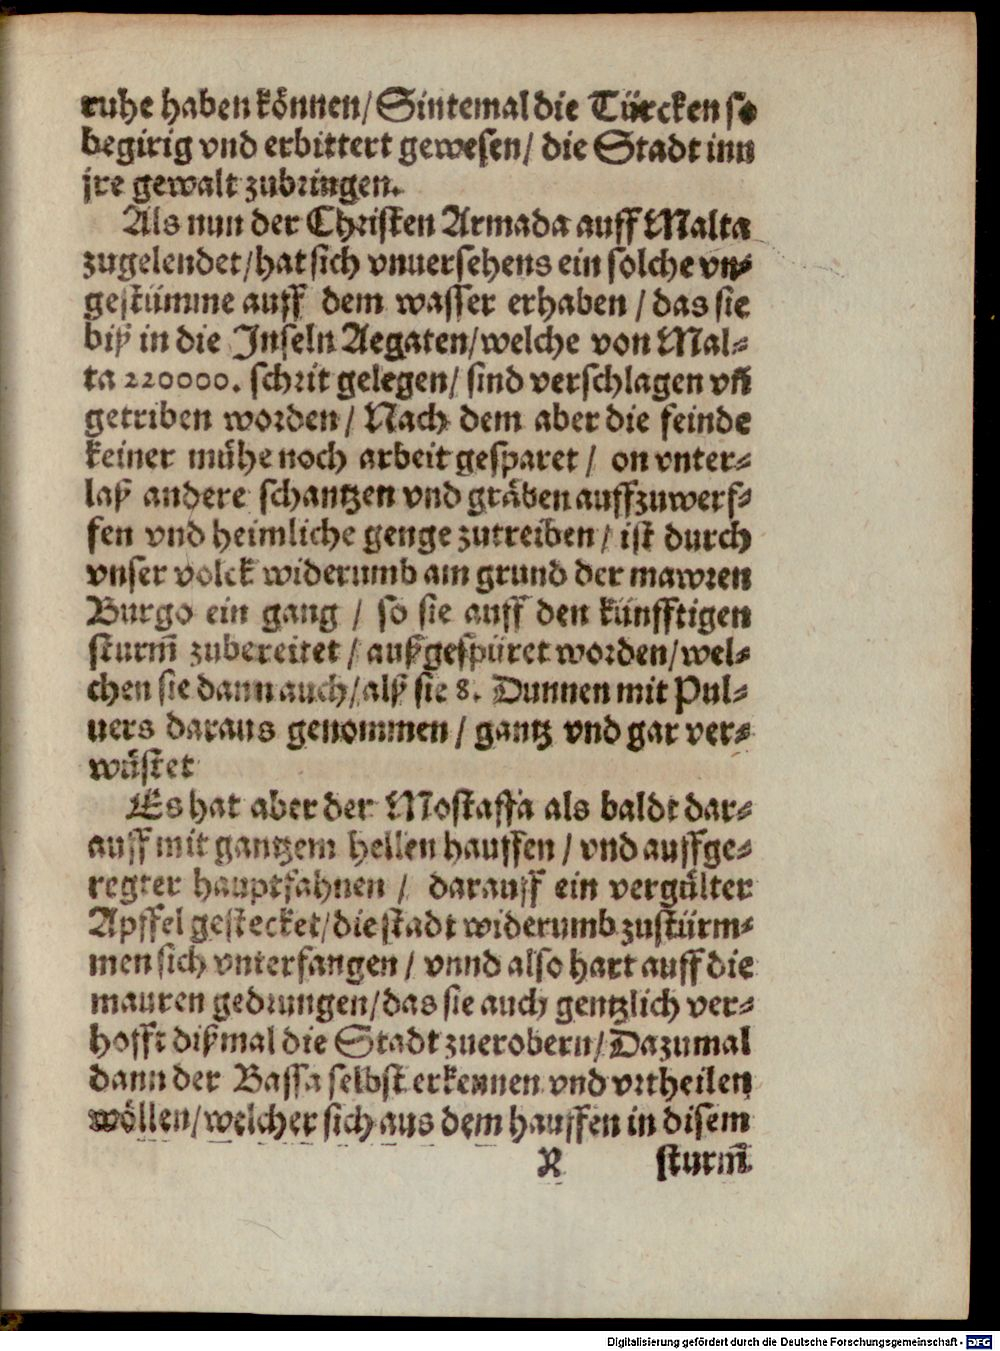 ruhe haben können/ Sintemal die Türcken so
begirig vnd erbittert gewesen/ die Stadt inn
jre gewalt zubringen.
Als nun der Christen Armada auff Malta
zugelendet/ hat sich vnuersehens ein solche vn-
gestümme auff dem wasser erhaben / das sie
biß in die Inseln Aegaten/ welche von Mal-
ta 220000. schrit gelegen/ sind verschlagen vñ
getriben worden/ Nach dem aber die feinde
keiner mühe noch arbeit gesparet / on vnter-
laß andere schantzen vnd gräben auffzuwerf-
fen vnd heimliche genge zutreiben/ ist durch
vnser volck widerumb am grund der mawren
Burgo ein gang / so sie auff den künfftigen
sturm̄ zubereitet / außgespüret worden/ wel-
chen sie dann auch/ alß sie 8. Dunnen mit Pul-
uers daraus genommen/ gantz vnd gar ver-
wüstet
Es hat aber der Mostaffa als baldt dar-
auff mit gantzem hellen hauffen / vnd auffge-
regter hauptfahnen / darauff ein vergülter
Apffel gestecket/ die stadt widerumb zustürm-
men sich vnterfangen / vnnd also hart auff die
mauren gedrungen/ das sie auch gentzlich ver-
hofft dißmal die Stadt zuerobern/ Dazumal
dann der Bassa selbst erkennen vnd vrtheilen
wöllen/ welcher sich aus dem hauffen in disem
R sturm̄
Digitalisierung gefördert durch die Deutsche Forschungsgemeinschaft - DFG